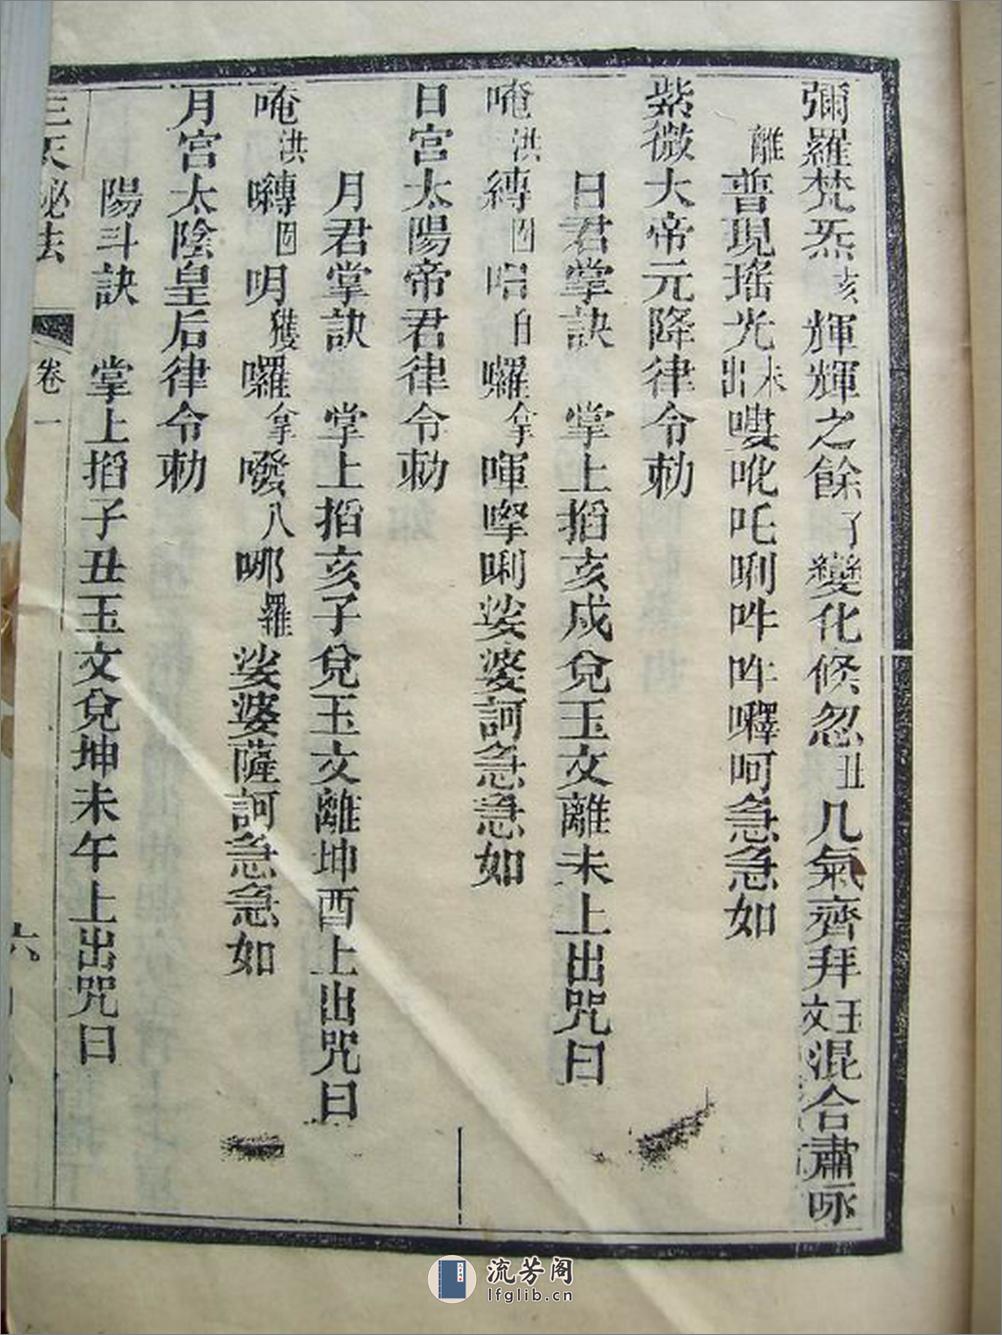 彌羅梵炁亥輝輝之餘子變化倏忽丑几氣齊拜玉文混合肅咏
離普現瑤光未出嘍吡吒唎吽吽㘁呵急急如
紫微大帝元降律令勅
日君掌訣 掌上搯亥戍兌玉文離未上出咒曰
唵洪縳囙唱白囉拿喗㗚唎娑婆訶急急如
日宮太陽帝君律令勅
月君掌訣 掌上搯亥子兌玉文離坤酉上出咒曰
唵洪囀囙明獲囉拿㗶八哪羅娑婆薩訶急急如
月宮太陰皇后律令勅
陽斗訣 掌上搯子丑玉文兌坤未午上出咒曰
三天秘法 卷一 六
流芳阁
lfglib.cn